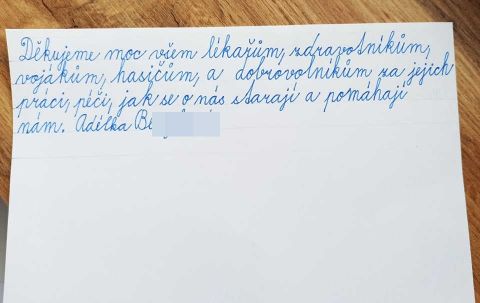 Děkujeme moc všem lékařům, zdravotníkům,
vojákům, hasičům, a dobrovolníkům za jejich
práci, péči, jak se o nás starají a pomáhají
nám. Adélka